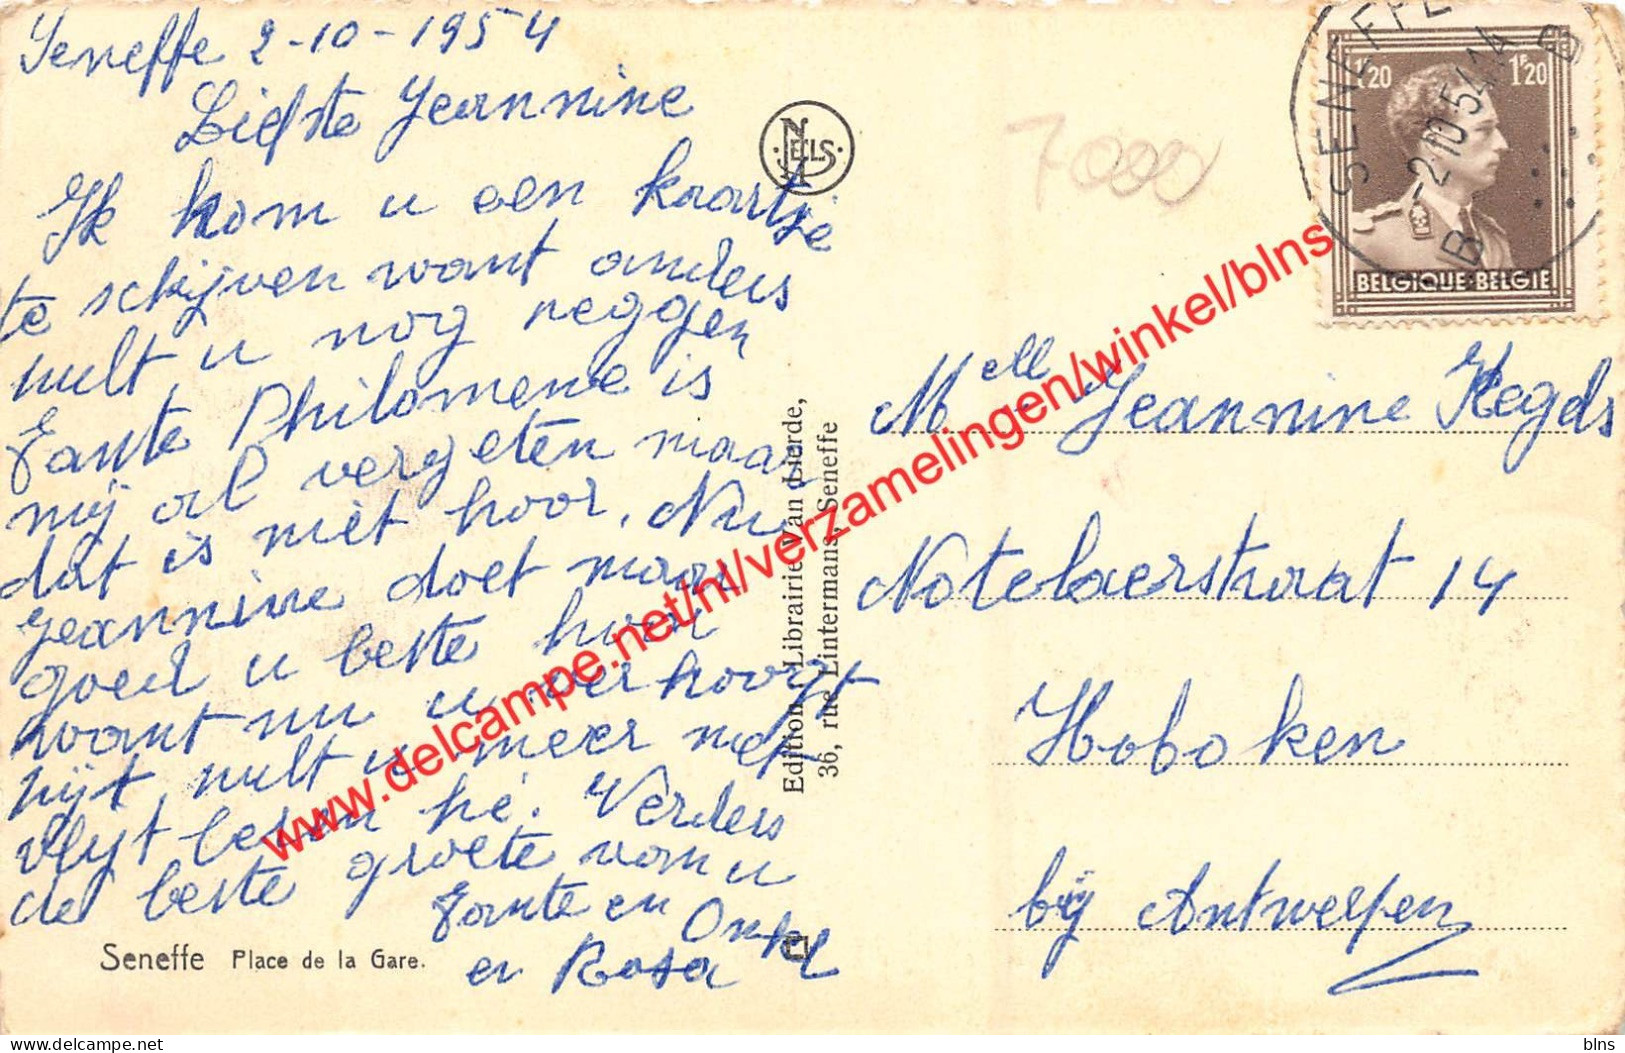 Seneffe 2-10-1954
Liefste Jeannine
Ik kom u een kaartje
te schijven want anders
nult u nog neggen
Tante Philomene is
mij al vergeten maar
dat is niet hoor. Nu
Jeannine doet maar
goed u beste hoor
want nu u verhoogt
nijt nult u meer met
vlyt leren hé. Verders
de beste groete van u
Tante en Onkel
en Rosa
Seneffe Place de la Gare.
NELS
Edition Librairie Van Lierde,
36, rue Lintermans, Seneffe
7000
SENEFFE
-2-10 54 14
B B
1F20 1F20
BELGIQUE·BELGIE
Mell Jeannine Kegels
Notelaerstraat 14
Hoboken
bij Antwerpen
www.delcampe.net/nl/verzamelingen/winkel/blns
delcampe.net
blns